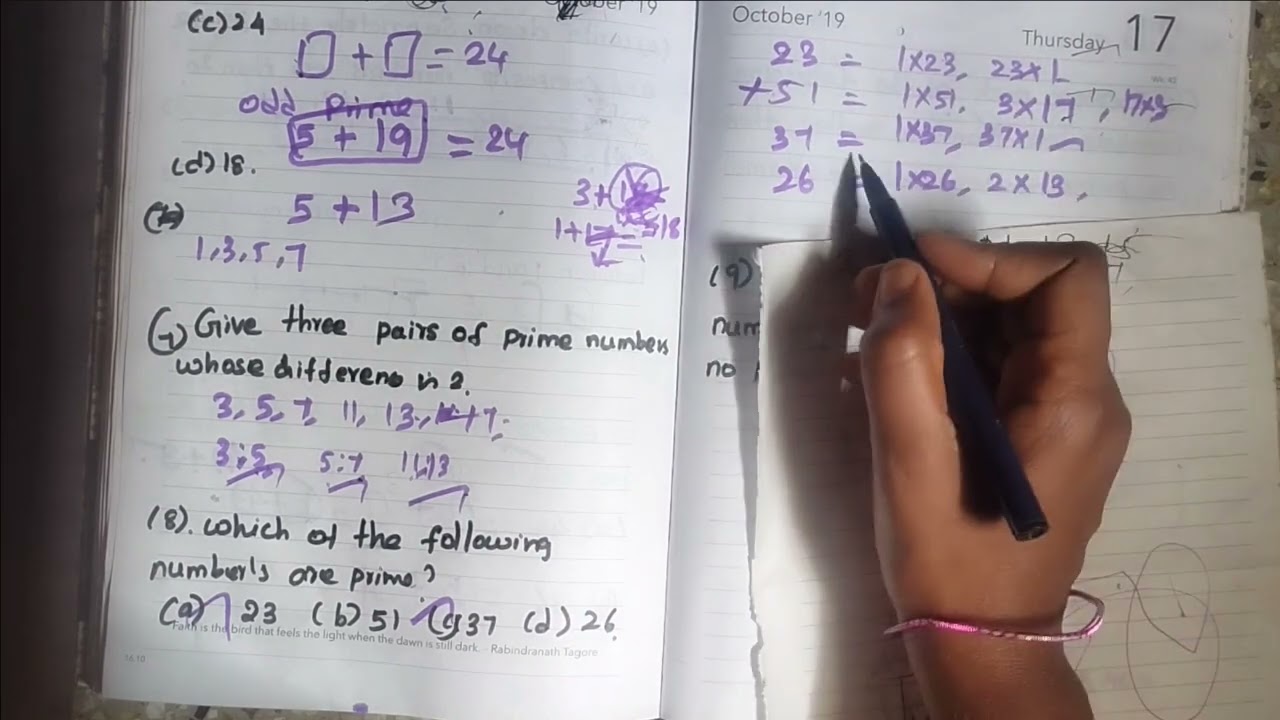 (c) 24
□ + □ = 24
odd prime
5 + 19 = 24
(d) 18.
5 + 13
3 +
1 + 17 = 18
1, 3, 5, 7
Give three pairs of prime numbers
whose differenc is 2.
3, 5, 7, 11, 13, 17,
3;5 5;7 11;13
(8). Which of the following
number's are prime?
(a) 23 (b) 51 (c) 37 (d) 26.
Faith is the bird that feels the light when the dawn is still dark. - Rabindranath Tagore
16.10
October '19
October '19
Thursday 17
23 = 1×23, 23×1
+51 = 1×51, 3×17, 17×3
37 = 1×37, 37×1
26 = 1×26, 2×13,
(9)
num
no